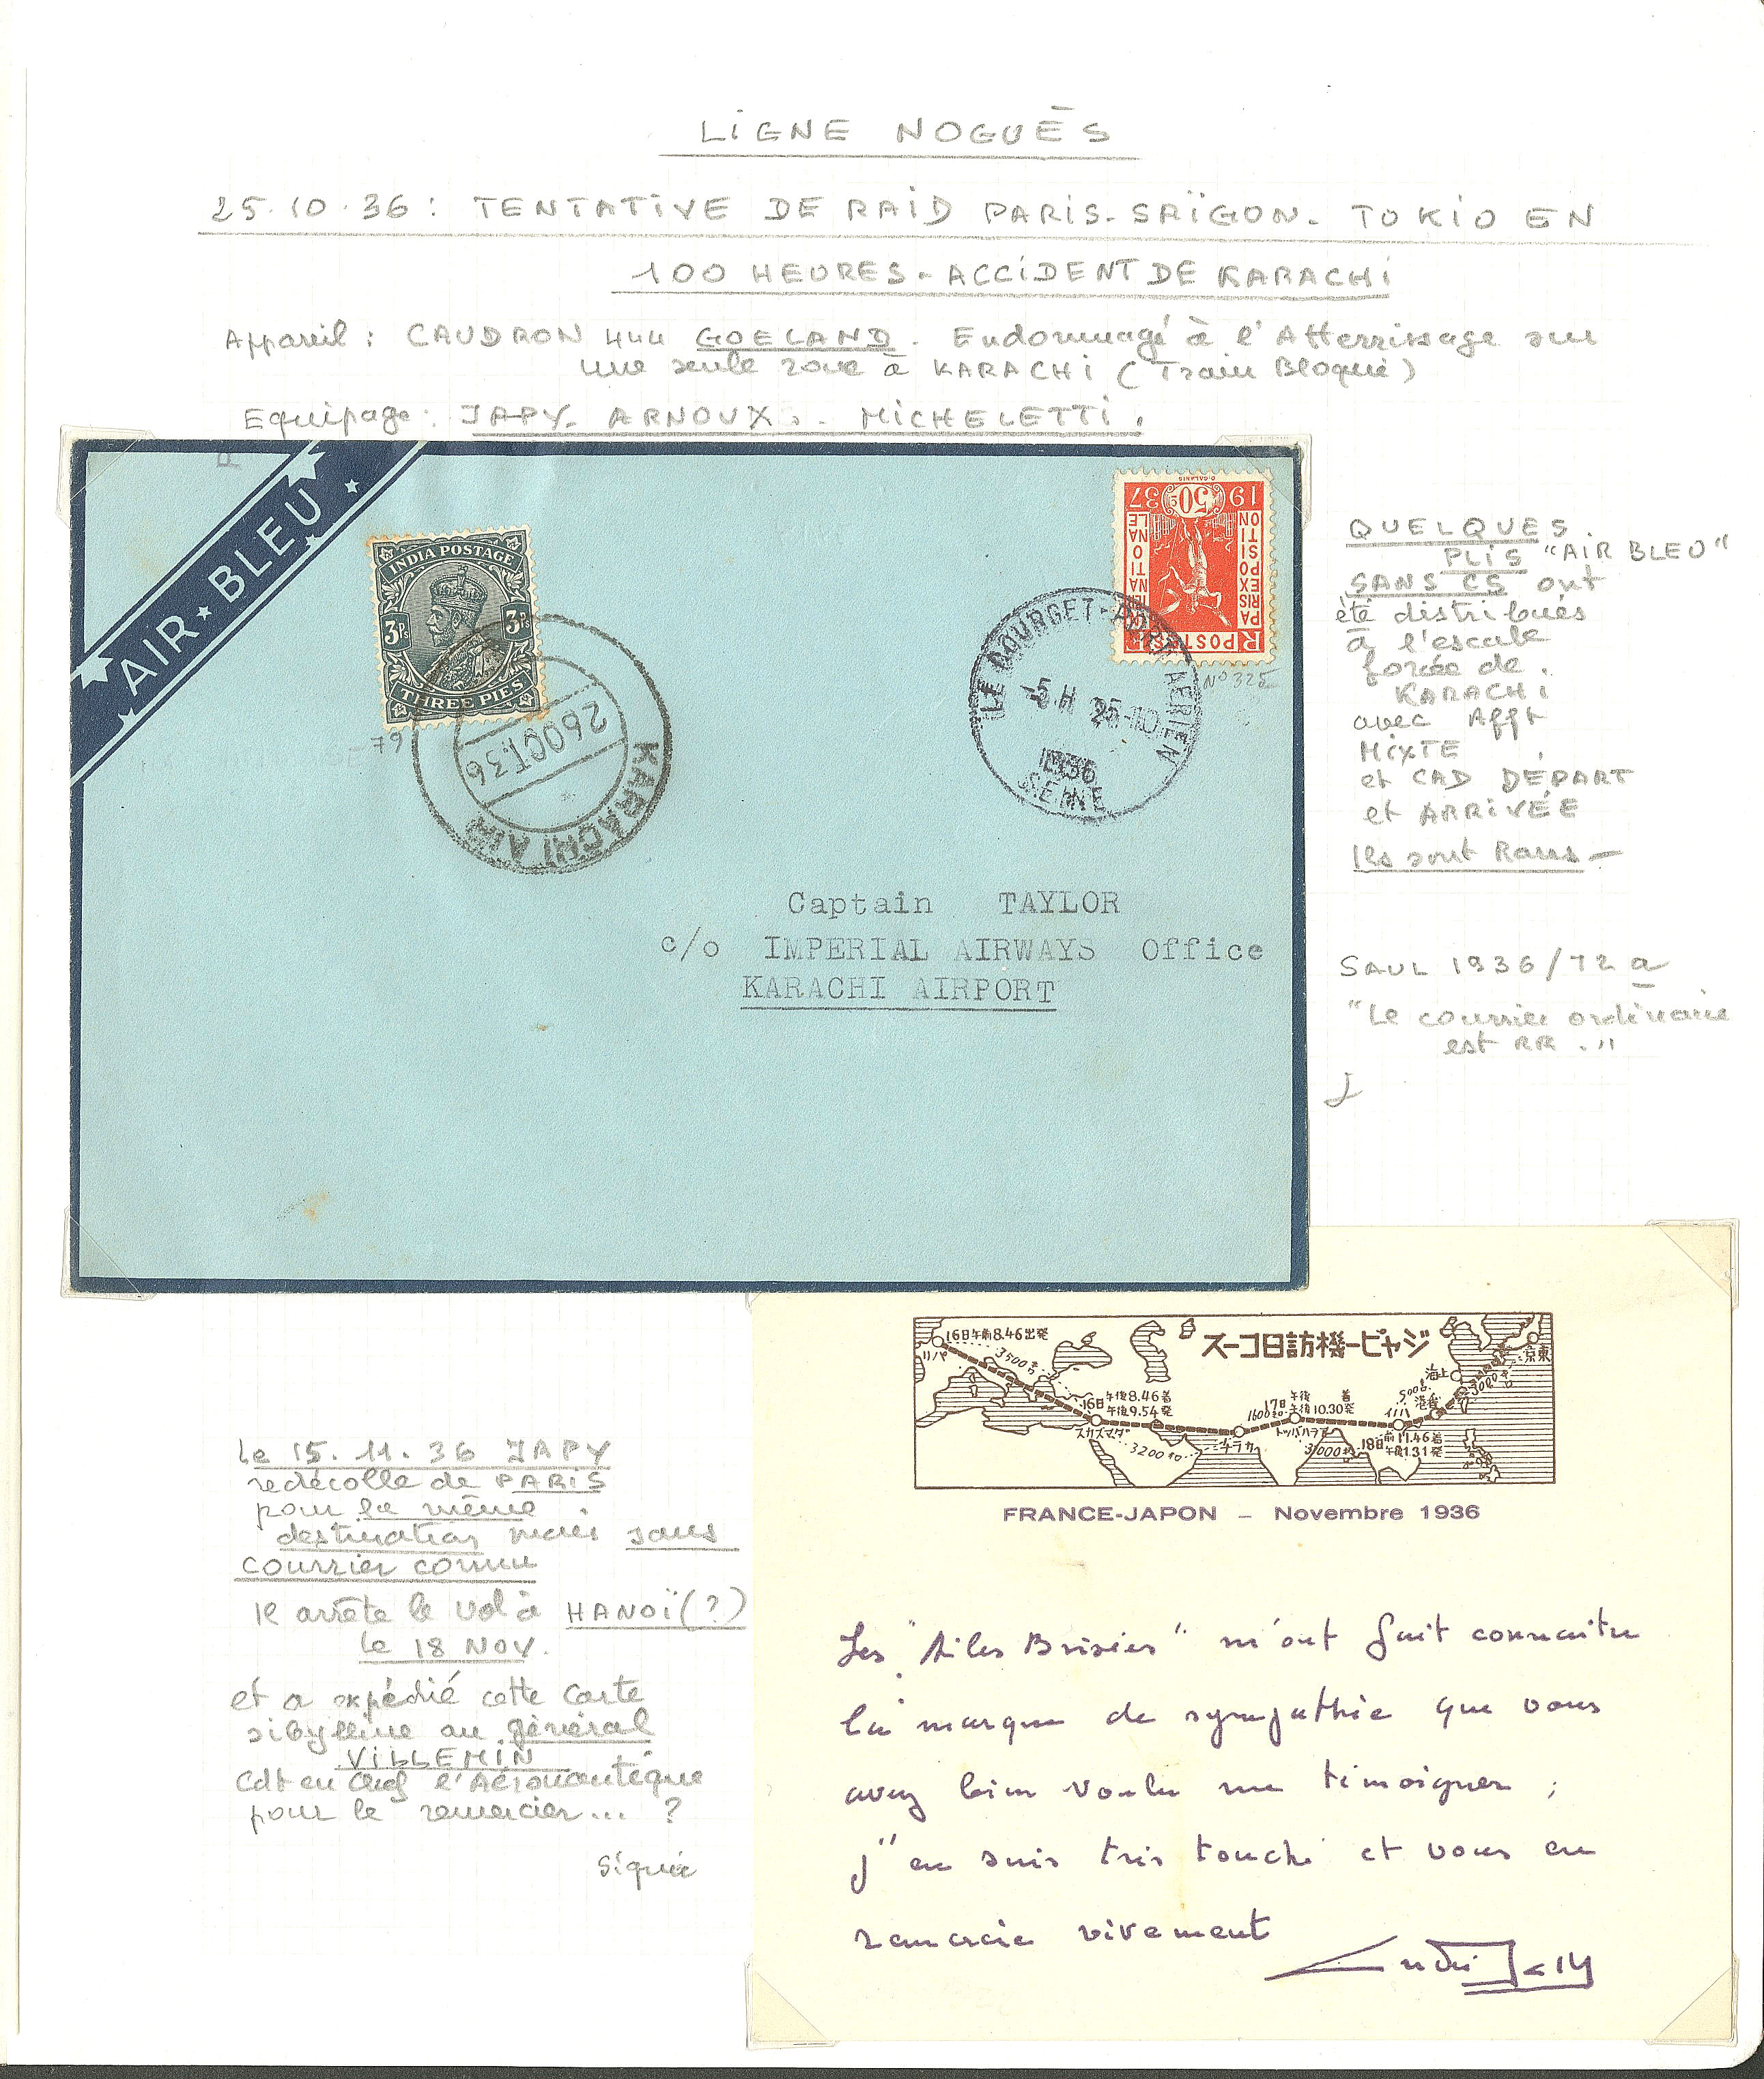 LIGNE NOGUÈS
25.10.36: TENTATIVE DE RAID PARIS-SAÏGON-TOKIO EN
100 HEURES-ACCIDENT DE KARACHI
Appareil: CAUDRON 444 GOELAND. Endommagé à l'Atterrissage sur
une seule roue à KARACHI (Train Bloqué)
Equipage: JAPY-ARNOUX.. MICHELETTI.
AIR★BLEU
INDIA POSTAGE
3Ps 3Ps
THREE PIES
79
26 OCT. 36
KARACHI AIR
LE BOURGET-PORT AERIEN
-5 H 25-10
1936
SEINE
19 50c 37
PARIS EXPOSITION INTERNATIONALE
POSTES
N° 325
Captain TAYLOR
c/o IMPERIAL AIRWAYS Office
KARACHI AIRPORT
QUELQUES
PLIS "AIR BLEU"
SANS CS ont
été distribués
à l'escale
forcée de
KARACHI
avec Afft
MIXTE
et CAD DÉPART
et ARRIVÉE
Ils sont Rares-
SAUL 1936/72 a
"Le courrier ordinaire
est RR."
スーコ日訪機ーピャジ
16日午前8.46出発
リパ
3500キロ
16日
午後8.46着
午後9.54発
スカズマダ
3200キロ
チラカ
1600キロ
17日
午後 着
午後10.30発
3000キロ
18日
前11.46着
午后1.31発
イノハ
500キロ
港香
海上
3000キロ
京東
FRANCE-JAPON - Novembre 1936
Les "Ailes Brisées" m'ont fait connaitre
la marque de sympathie que vous
avez bien voulu me témoigner ;
j'en suis très touché et vous en
remercie vivement
André Japy
Le 15.11.36 JAPY
redécolle de PARIS
pour la même
destination mais sans
courrier connu
Il arrête le vol à HANOÏ(?)
le 18 NOV.
et a expédié cette carte
sibylline au général
VILLEMIN
Cdt en Chef l'Aéronautique
pour le remercier... ?
Signée